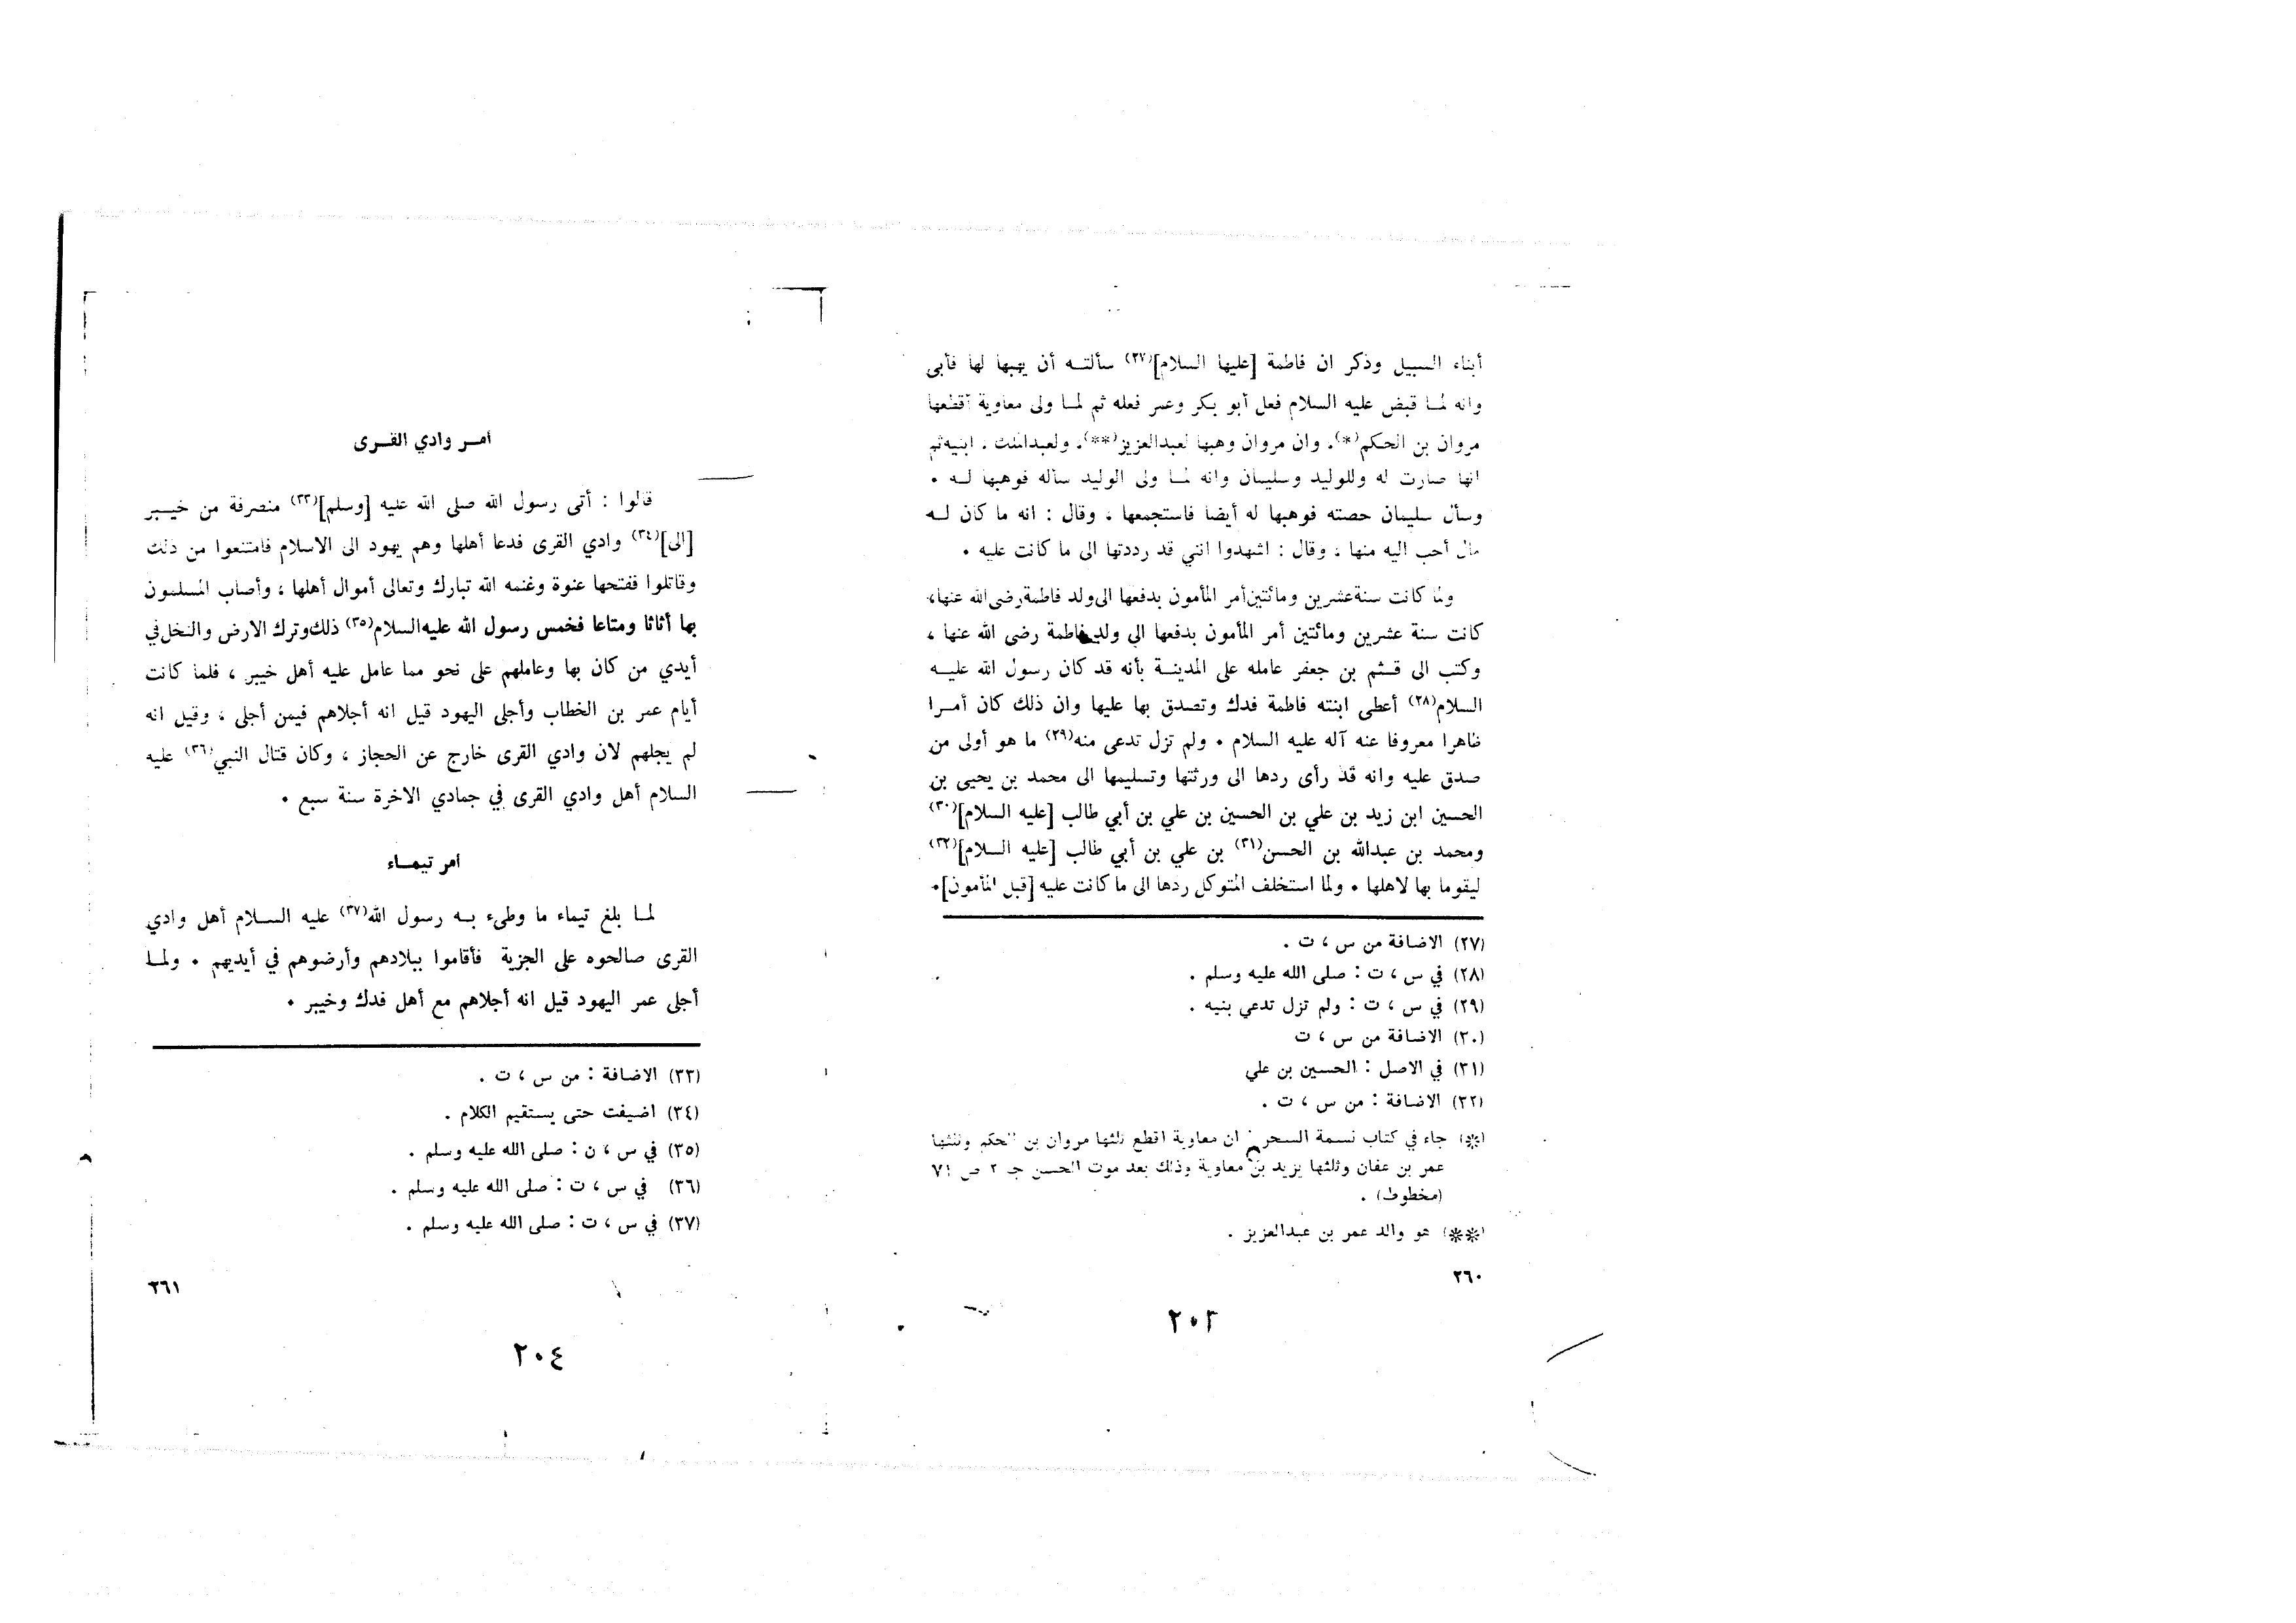 أبناء السبيل وذكر ان فاطمة [عليها السلام](٢٧) سألتــه أن يهبها لها فأبى
وانه لمـا قبض عليه السلام فعل أبو بكر وعمر فعله ثم لمـا ولى معاوية أقطعها
مروان بن الحكم(*)، وان مروان وهبها لعبدالعزيز(**)، ولعبدالملك ، ابنيه ثم
انها صارت له وللوليد وسليمان وانه لمـا ولى الوليد سأله فوهبها لــه •
وسأل سليمان حصته فوهبها له أيضا فاستجمعها ، وقال : انه ما كان لــه
مال أحب اليه منها ، وقال : اشهدوا انني قد رددتها الى ما كانت عليه •
ولما كانت سنة عشرين ومائتين أمر المأمون بدفعها الى ولد فاطمة رضى الله عنها،
كانت سنة عشرين ومائتين أمر المأمون بدفعها الي ولد فاطمة رضى الله عنها ،
وكتب الى قــثم بن جعفر عامله على المدينــة بأنه قد كان رسول الله عليــه
السلام(٢٨) أعطى ابنته فاطمة فدك وتصدق بها عليها وان ذلك كان أمــرا
ظاهرا معروفا عنه آله عليه السلام • ولم تزل تدعى منه(٢٩) ما هو أولى من
صدق عليه وانه قد رأى ردها الى ورثتها وتسليمها الى محمد بن يحيى بن
الحسين ابن زيد بن علي بن الحسين بن علي بن أبي طالب [عليه السلام](٣٠)
ومحمد بن عبدالله بن الحسن(٣١) بن علي بن أبي طالب [عليه السلام](٣٢)
ليقوما بها لاهلها • ولما استخلف المتوكل ردها الى ما كانت عليه [قبل المأمون]•
(٢٧) الاضافة من س ، ت .
(٢٨) في س ، ت : صلى الله عليه وسلم .
(٢٩) في س ، ت : ولم تزل تدعي بنيه .
(٣٠) الاضافة من س ، ت
(٣١) في الاصل : الحسين بن علي
(٣٢) الاضافة : من س ، ت .
(*) جاء في كتاب نسمة السحر : ان معاوية اقطع ثلثها مروان بن الحكم وثلثها
عمر بن عفان وثلثها يزيد بن معاوية وذلك بعد موت الحسن جـ ٢ ص ٧١
(مخطوط) .
(**) هو والد عمر بن عبدالعزيز .
٢٦٠
٢٠٣
أمــر وادي القــرى
قالوا : أتى رسول الله صلى الله عليه [وسلم](٣٣) منصرفة من خيــبر
[الى](٣٤) وادي القرى فدعا أهلها وهم يهود الى الاسلام فامتنعوا من ذلك
وقاتلوا ففتحها عنوة وغنمه الله تبارك وتعالى أموال أهلها ، وأصاب المسلمون
بها أثاثا ومتاعا فخمس رسول الله عليه السلام(٣٥) ذلك وترك الارض والنخل في
أيدي من كان بها وعاملهم على نحو مما عامل عليه أهل خيبر ، فلما كانت
أيام عمر بن الخطاب وأجلى اليهود قيل انه أجلاهم فيمن أجلى ، وقيل انه
لم يجلهم لان وادي القرى خارج عن الحجاز ، وكان قتال النبي(٣٦) عليه
السلام أهل وادي القرى في جمادي الاخرة سنة سبع •
أمر تيمــاء
لمـا بلغ تيماء ما وطىء بــه رسول الله(٣٧) عليه الســلام أهل وادي
القرى صالحوه على الجزية فأقاموا ببلادهم وأرضوهم في أيديهم • ولمـا
أجلى عمر اليهود قيل انه أجلاهم مع أهل فدك وخيبر •
(٣٣) الاضافة : من س ، ت .
(٣٤) اضيفت حتى يستقيم الكلام .
(٣٥) في س ، ن : صلى الله عليه وسلم .
(٣٦) في س ، ت : صلى الله عليه وسلم .
(٣٧) في س ، ت : صلى الله عليه وسلم .
٢٦١
٢٠٤